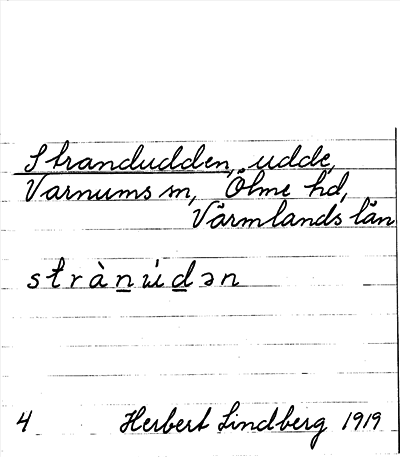 Strandudden, udde,
Varnums sn, Ölme hd,
Värmlands län
strànu̇́dən
4 Herbert Lindberg 1919